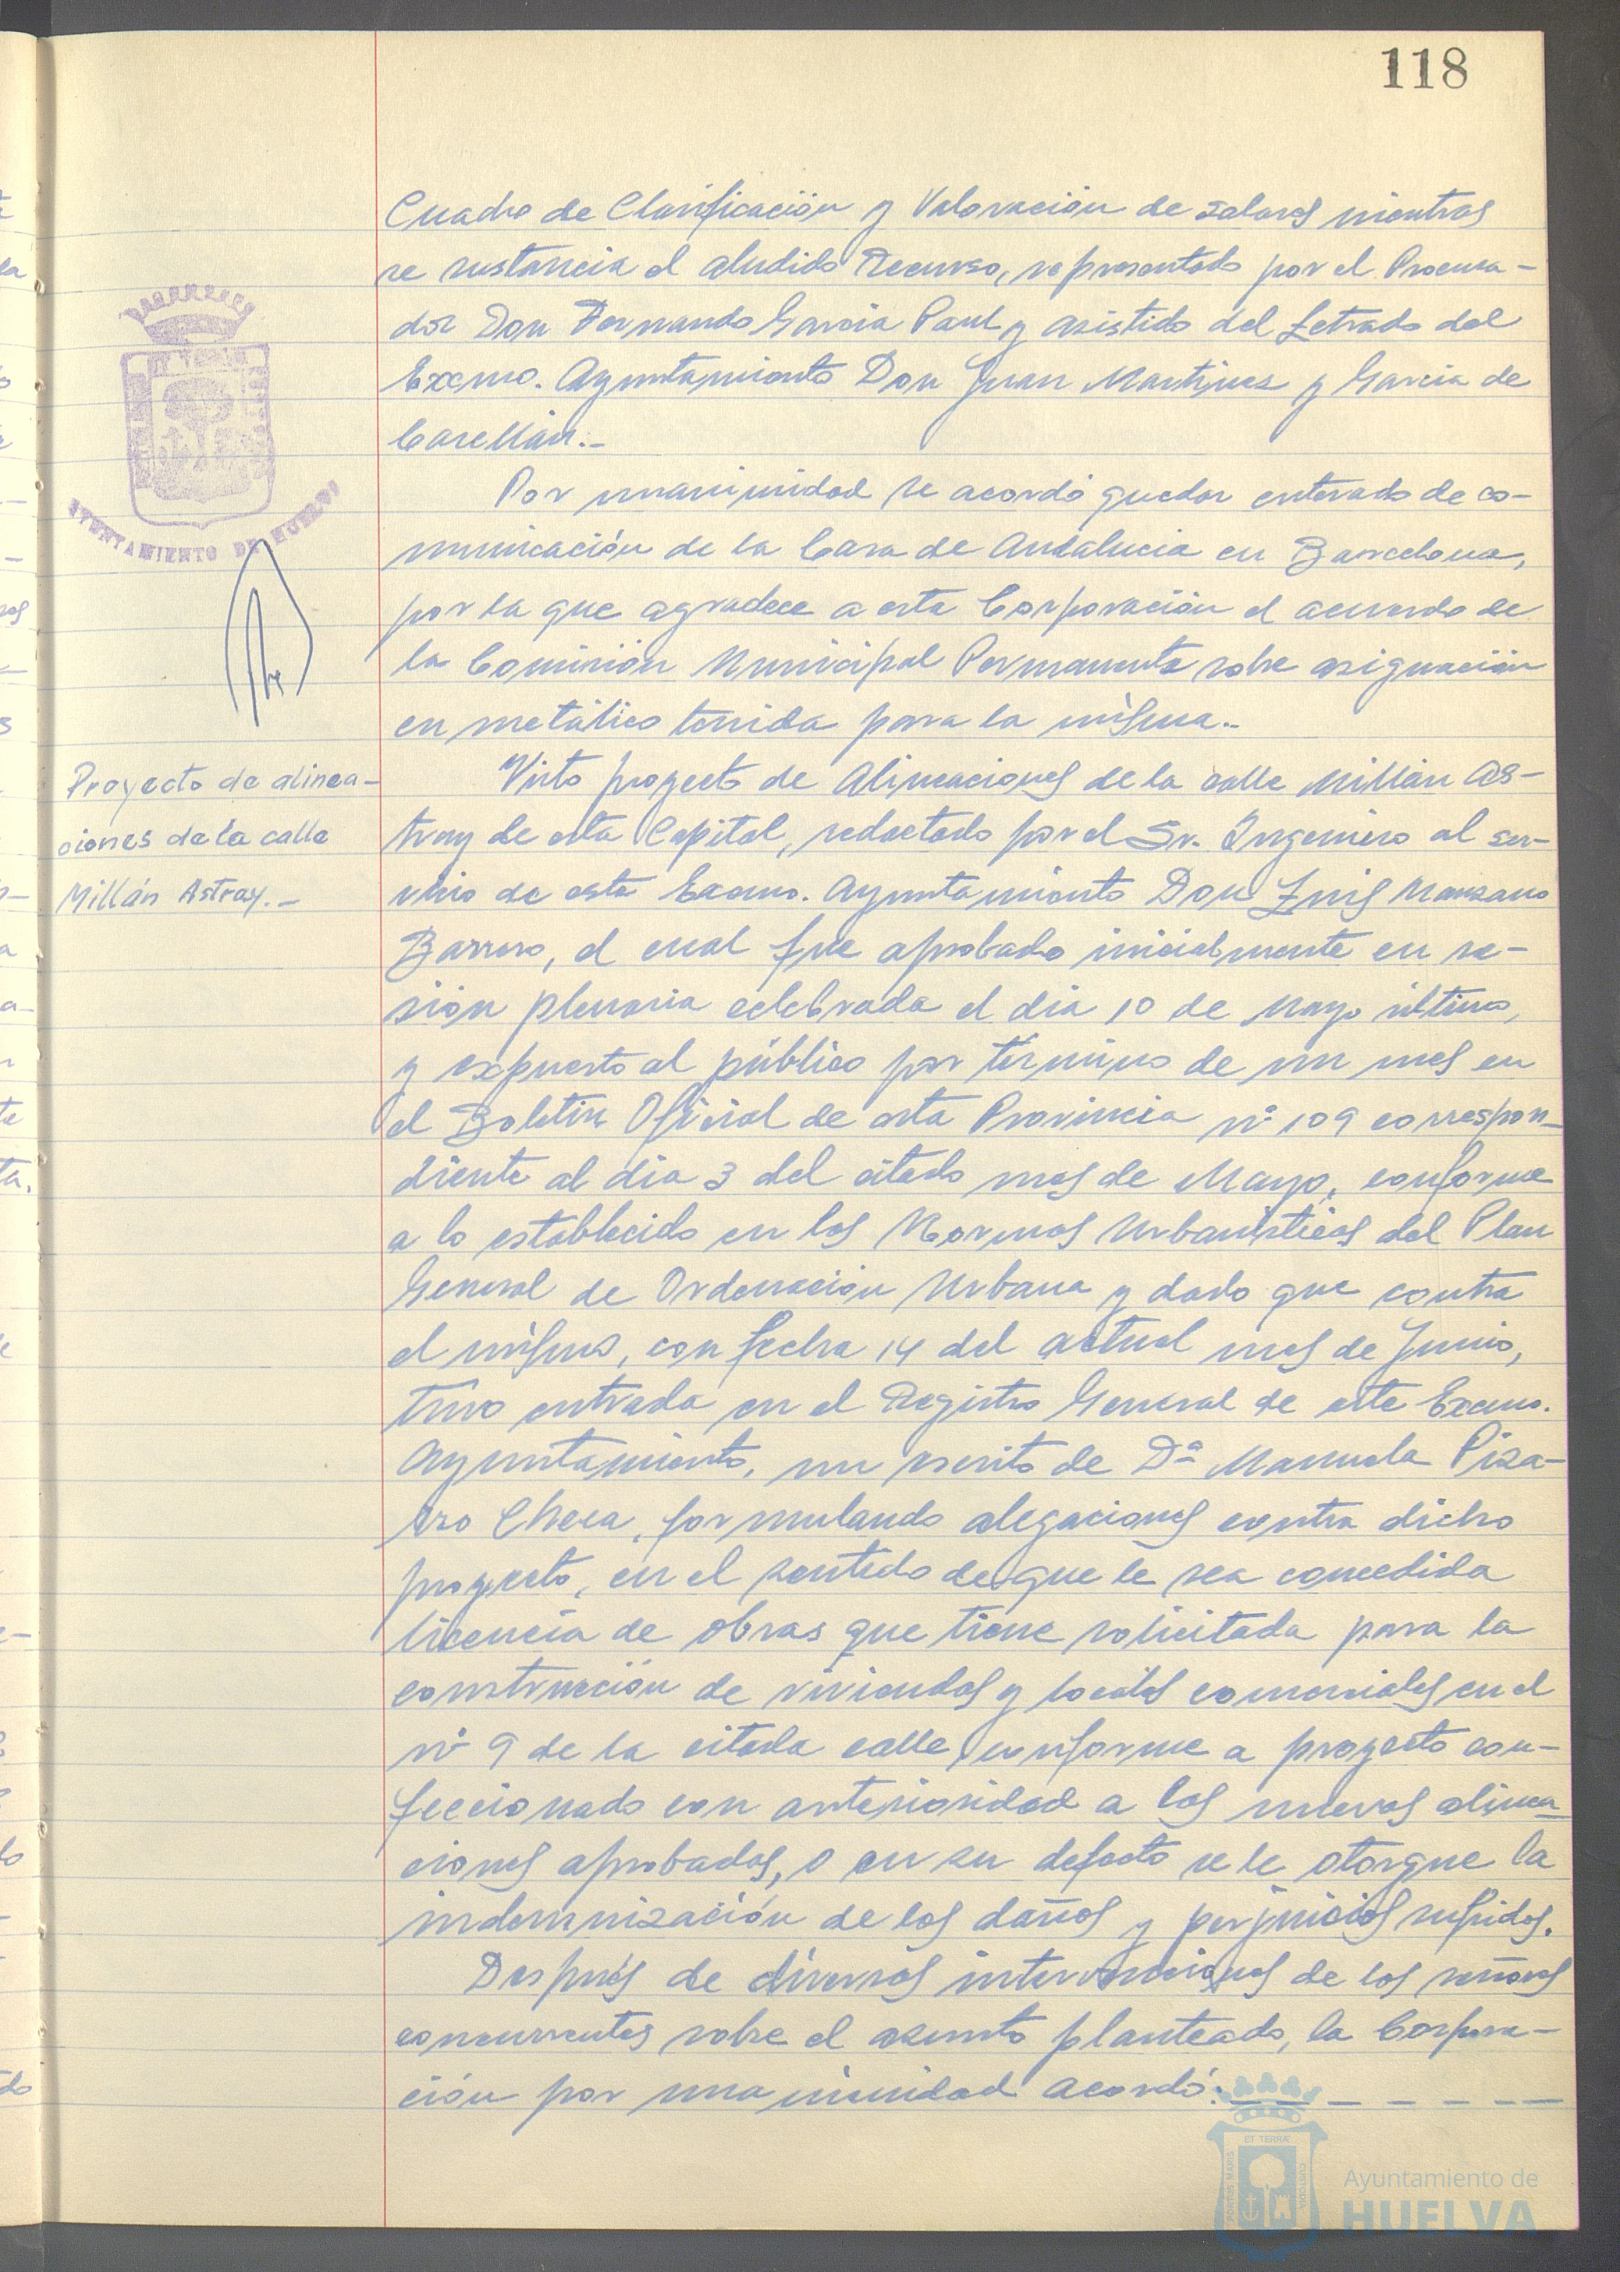 118
Cuadro de Clasificación y Valoración de solares mientras
se sustancia el aludido Recurso, representado por el Procura-
dor Don Fernando García Paul y asistido del Letrado del
Excmo. Ayuntamiento Don Juan Martínez y García de
Casellán.-
Por unanimidad se acordó quedar enterado de co-
municación de la Casa de Andalucia en Barcelona,
por la que agradece a esta Corporación el acuerdo de
la Comisión Municipal Permanente sobre asignación
en metálico tenida para la misma.-
Proyecto de alinea-
ciones de la calle
Millán Astray.-
Visto proyecto de Alineaciones de la calle Millán As-
tray de esta Capital, redactado por el Sr. Ingeniero al ser-
vicio de este Excmo. Ayuntamiento Don Luis Manzano
Barrero, el cual fue aprobado inicialmente en se-
sión plenaria celebrada el día 10 de Mayo último,
y expuesto al público por término de un mes en
el Boletín Oficial de esta Provincia nº 109 correspon-
diente al día 3 del citado mes de Mayo, conforme
a lo establecido en las Normas Urbanísticas del Plan
General de Ordenación Urbana y dado que contra
el mismo, con fecha 14 del actual mes de Junio,
tuvo entrada en el Registro General de este Excmo.
Ayuntamiento, un escrito de Dª Manuela Piza-
rro Checa, formulando alegaciones contra dicho
proyecto, en el sentido de que le sea concedida
licencia de obras que tiene solicitada para la
construcción de viviendas y locales comerciales en el
nº 9 de la citada calle, conforme a proyecto con-
feccionado con anterioridad a las nuevas alinea-
ciones aprobadas, o en su defecto se le otorgue la
indemnización de los daños y perjuicios sufridos.
Después de diversas intervenciones de los señores
concurrentes sobre el asunto planteado, la Corpora-
ción por unanimidad acordó: - - - - - - -
AYUNTAMIENTO DE HUELVA
PORTUS MARIS
ET TERRAE
CUSTODIA
Ayuntamiento de
HUELVA